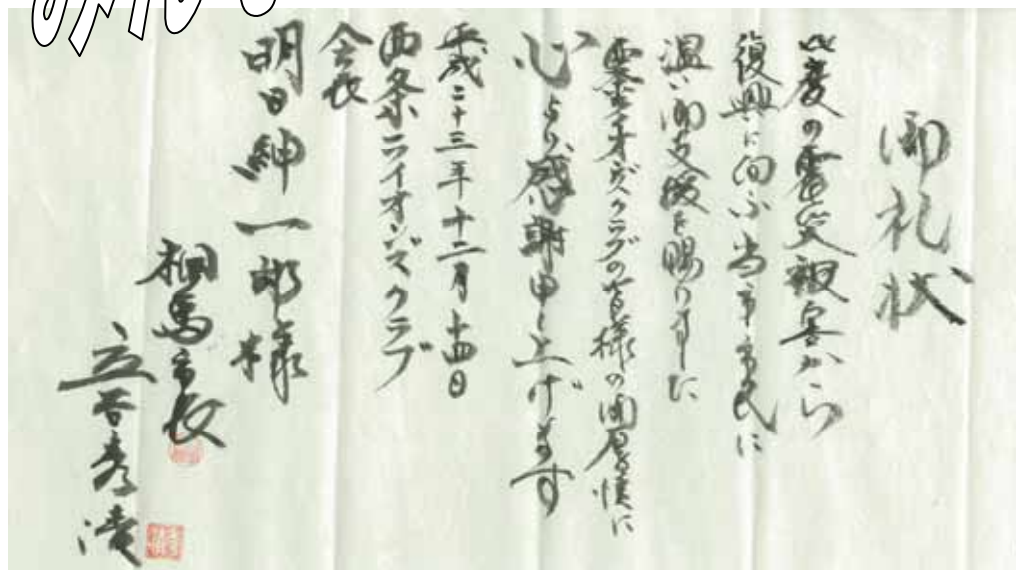 御礼状
此度の震災被害から
復興に向ふ当市市民に
温い御支援を賜りました
西条ライオンズクラブの皆様の御厚情に
心より感謝申し上げます
平成二十三年十二月十四日
西条ライオンズクラブ
会長
明日紳一郎様
相馬市長
立谷秀清